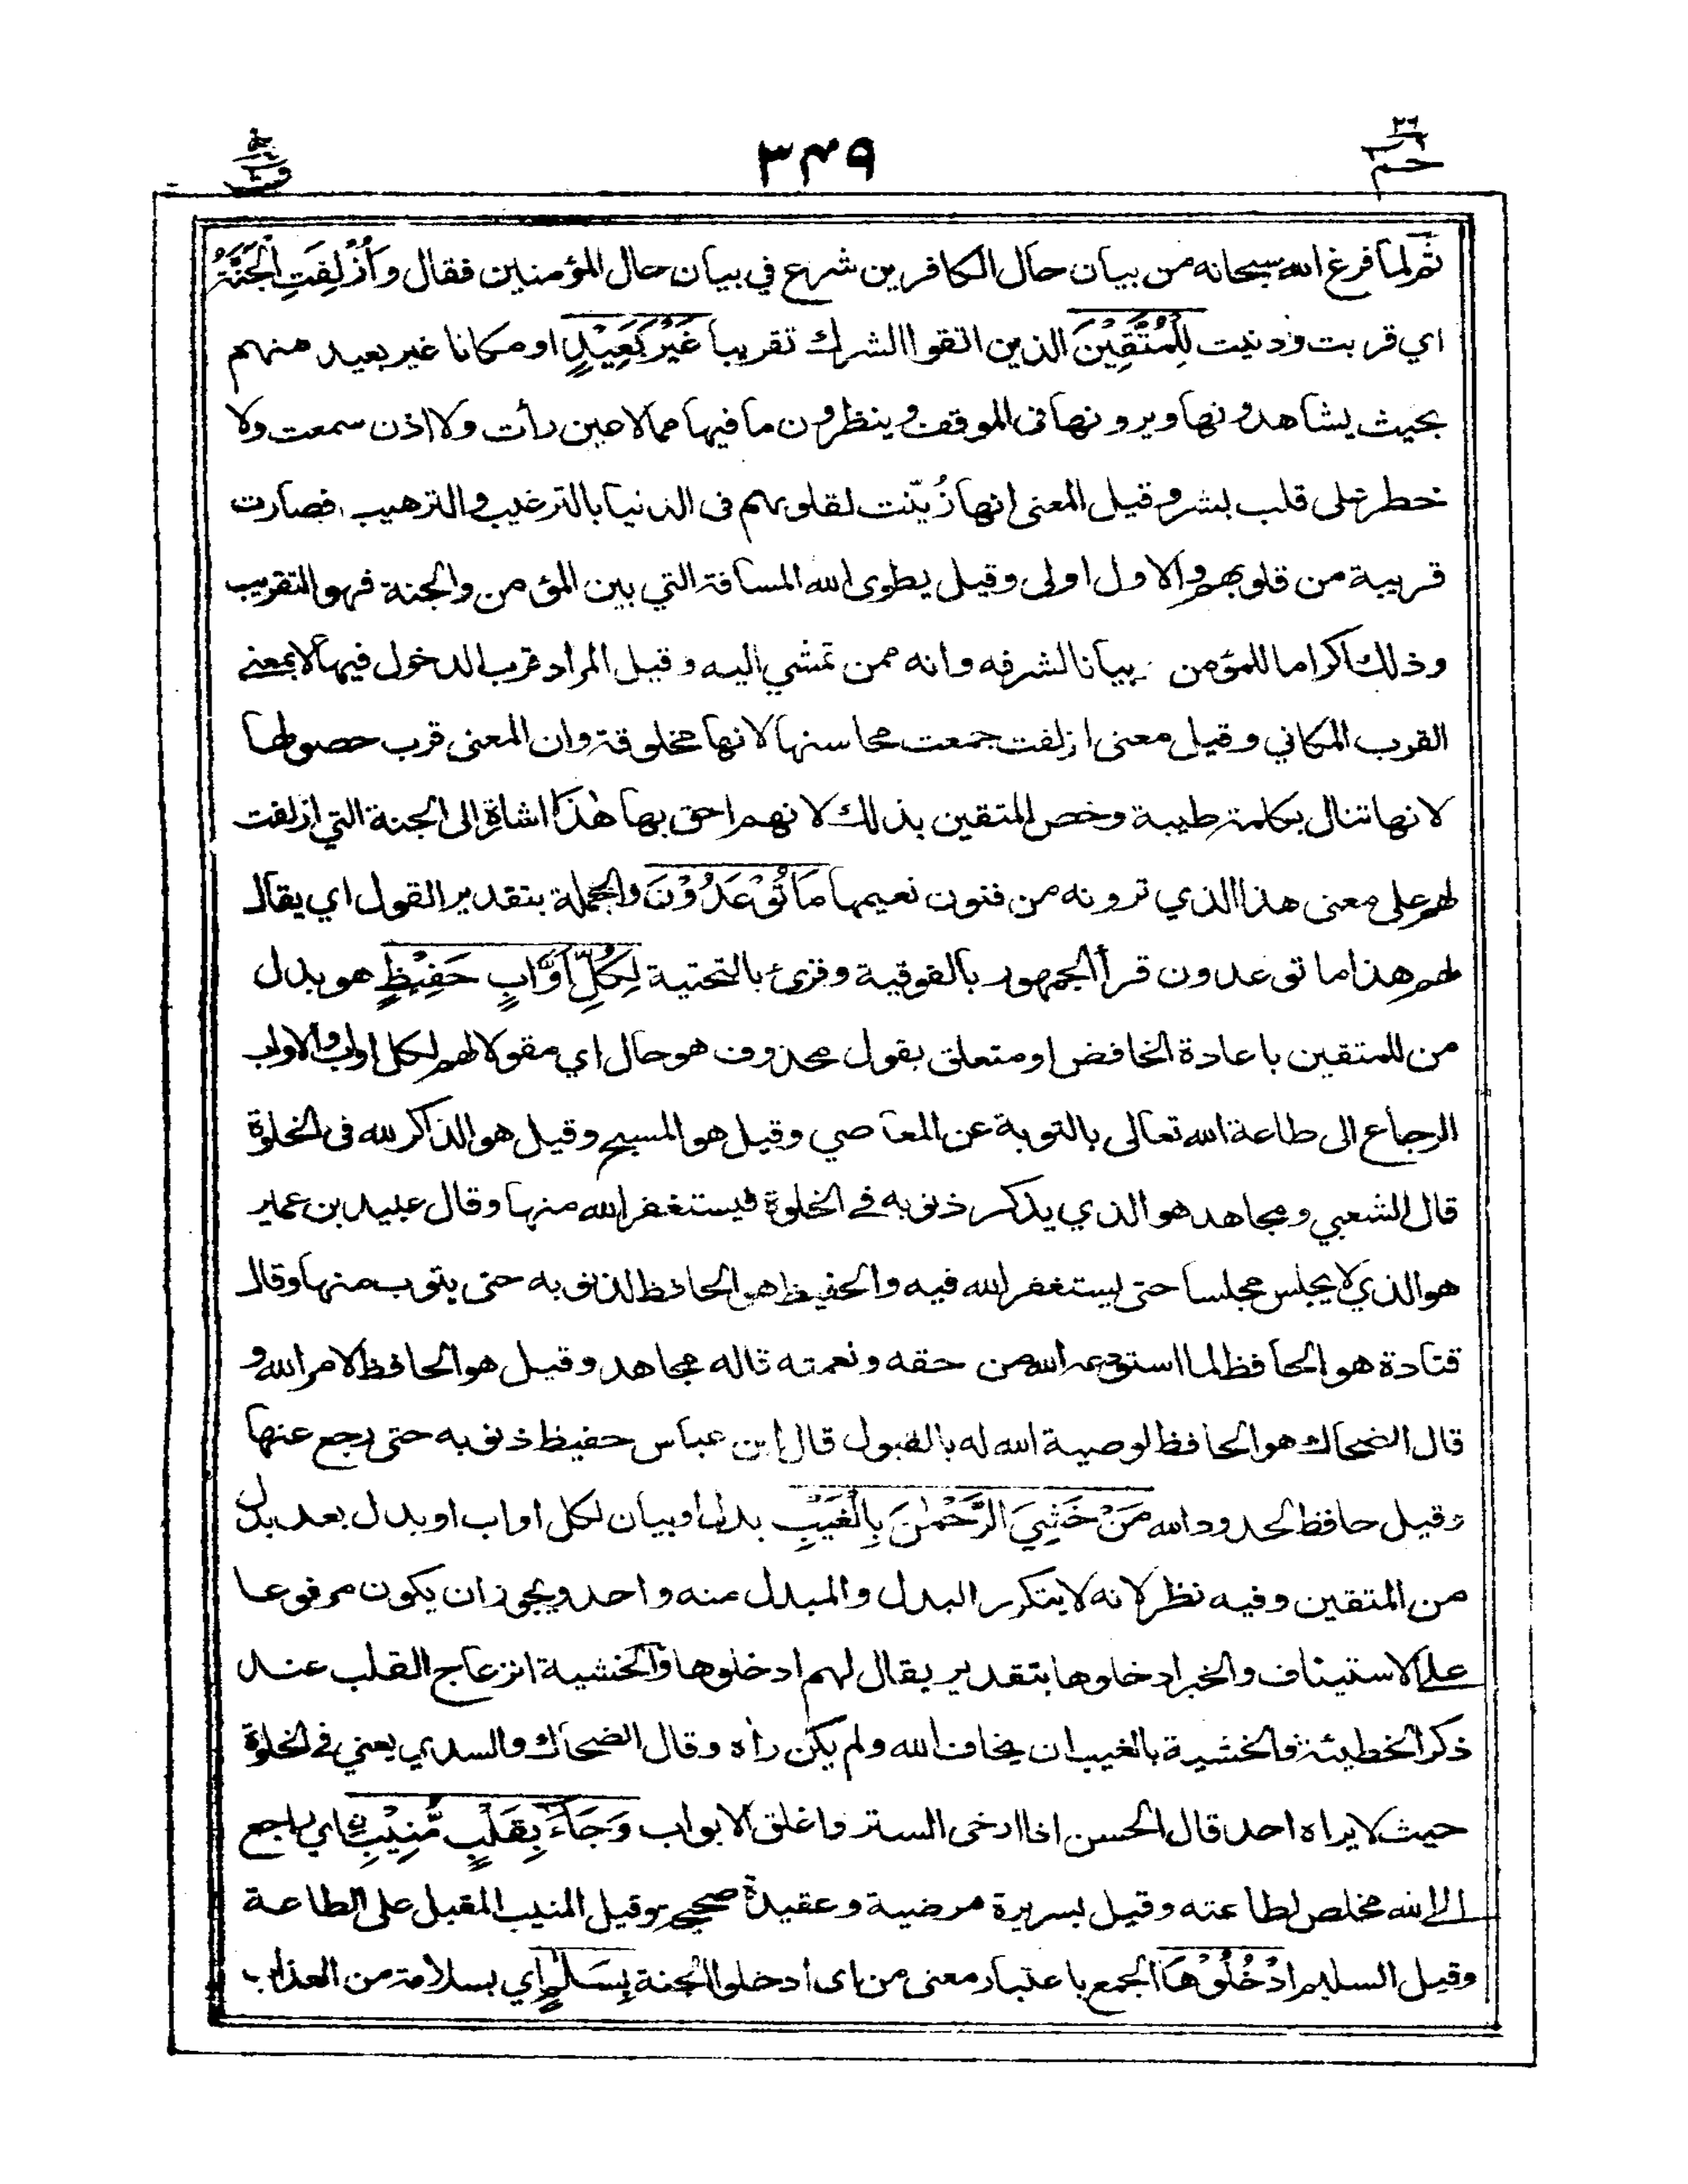 ٢٦
حم
٣٤٩
ق
ثم لما فرغ الله سبحانه من بيان حال الكافرين شرع في بيان حال المؤمنين فقال وَأُزْلِفَتِ الْجَنَّةُ
اي قربت ودنيت لِلْمُتَّقِيْنَ الذين اتقوا الشرك تقريبا غَيْرَ بَعِيْدٍ او مكانا غير بعيد منهم
بحيث يشاهدونها ويرونها فى الموقف وينظرون ما فيها مما لا عين رأت ولا اذن سمعت ولا
خطر على قلب بشر وقيل المعنى انها زُيّنت لقلوبهم فى الدنيا بالترغيب والترهيب فصارت
قريبة من قلوبهم والاول اولى وقيل يطوى الله المسافة التي بين المؤمن والجنة فهو التقريب
وذلك اكراما للمؤمن بيانا لشرفه وانه ممن تمشي اليه وقيل المراد قرب الدخول فيها لا بمعنے
القرب المكاني وقيل معنى ازلفت جمعت محاسنها لانها مخلوقة وان المعنى قرب حصولها
لانها تنال بكلمة طيبة وخص المتقين بذلك لانهم احق بها هٰذَا اشارة الى الجنة التي ازلفت
لهم على معنى هذا الذي ترونه من فنون نعيمها مَا تُوْعَدُوْنَ والجملة بتقدير القول اي يقال
لهم هذا ما توعدون قرأ الجمهور بالفوقية وقرئ بالتحتية لِكُلِّ أَوَّابٍ حَفِيْظٍ هو بدل
من للمتقين باعادة الخافض او متعلق بقول محذوف هو حال اي مقولا لهم لكل اواب والاواب
الرجاع الى طاعة الله تعالى بالتوبة عن المعاصي وقيل هو المسبح وقيل هو الذاكر لله فى الخلوة
قال الشعبي ومجاهد هو الذي يذكر ذنوبه في الخلوة فيستغفر الله منها وقال عبيد بن عمير
هو الذي لا يجلس مجلسا حتى يستغفر الله فيه والحفيظ هو الحافظ لذنوبه حتى يتوب منها وقال
قتادة هو الحافظ لما استودعه الله من حقه ونعمته قاله مجاهد وقيل هو الحافظ لامر الله و
قال الضحاك هو الحافظ لوصية الله له بالقبول قال ابن عباس حفيظ ذنوبه حتى رجع عنها
وقيل حافظ لحدود الله مَنْ خَشِيَ الرَّحْمٰنَ بِالْغَيْبِ بدل او بيان لكل اواب او بدل بعد بدل
من المتقين وفيه نظر لانه لا يتكرر البدل والمبدل منه واحد ويجوز ان يكون مرفوعا
على الاستيناف والخبر ادخلوها بتقدير يقال لهم ادخلوها والخشية انزعاج القلب عند
ذكر الخطيئة والخشية بالغيب ان يخاف الله ولم يكن رأه وقال الضحاك والسدي يعني في الخلوة
حيث لا يراه احد قال الحسن اذا ارخى الستر واغلق الابواب وَجَآءَ بِقَلْبٍ مُّنِيْبٍ اي راجع
الى الله مخلص لطاعته وقيل بسريرة مرضية وعقيدة صحيحة وقيل المنيب المقبل على الطاعة
وقيل السليم ادْخُلُوْهَا الجمع باعتبار معنى من اى ادخلوا الجنة بِسَلٰمٍ اي بسلامة من العذاب